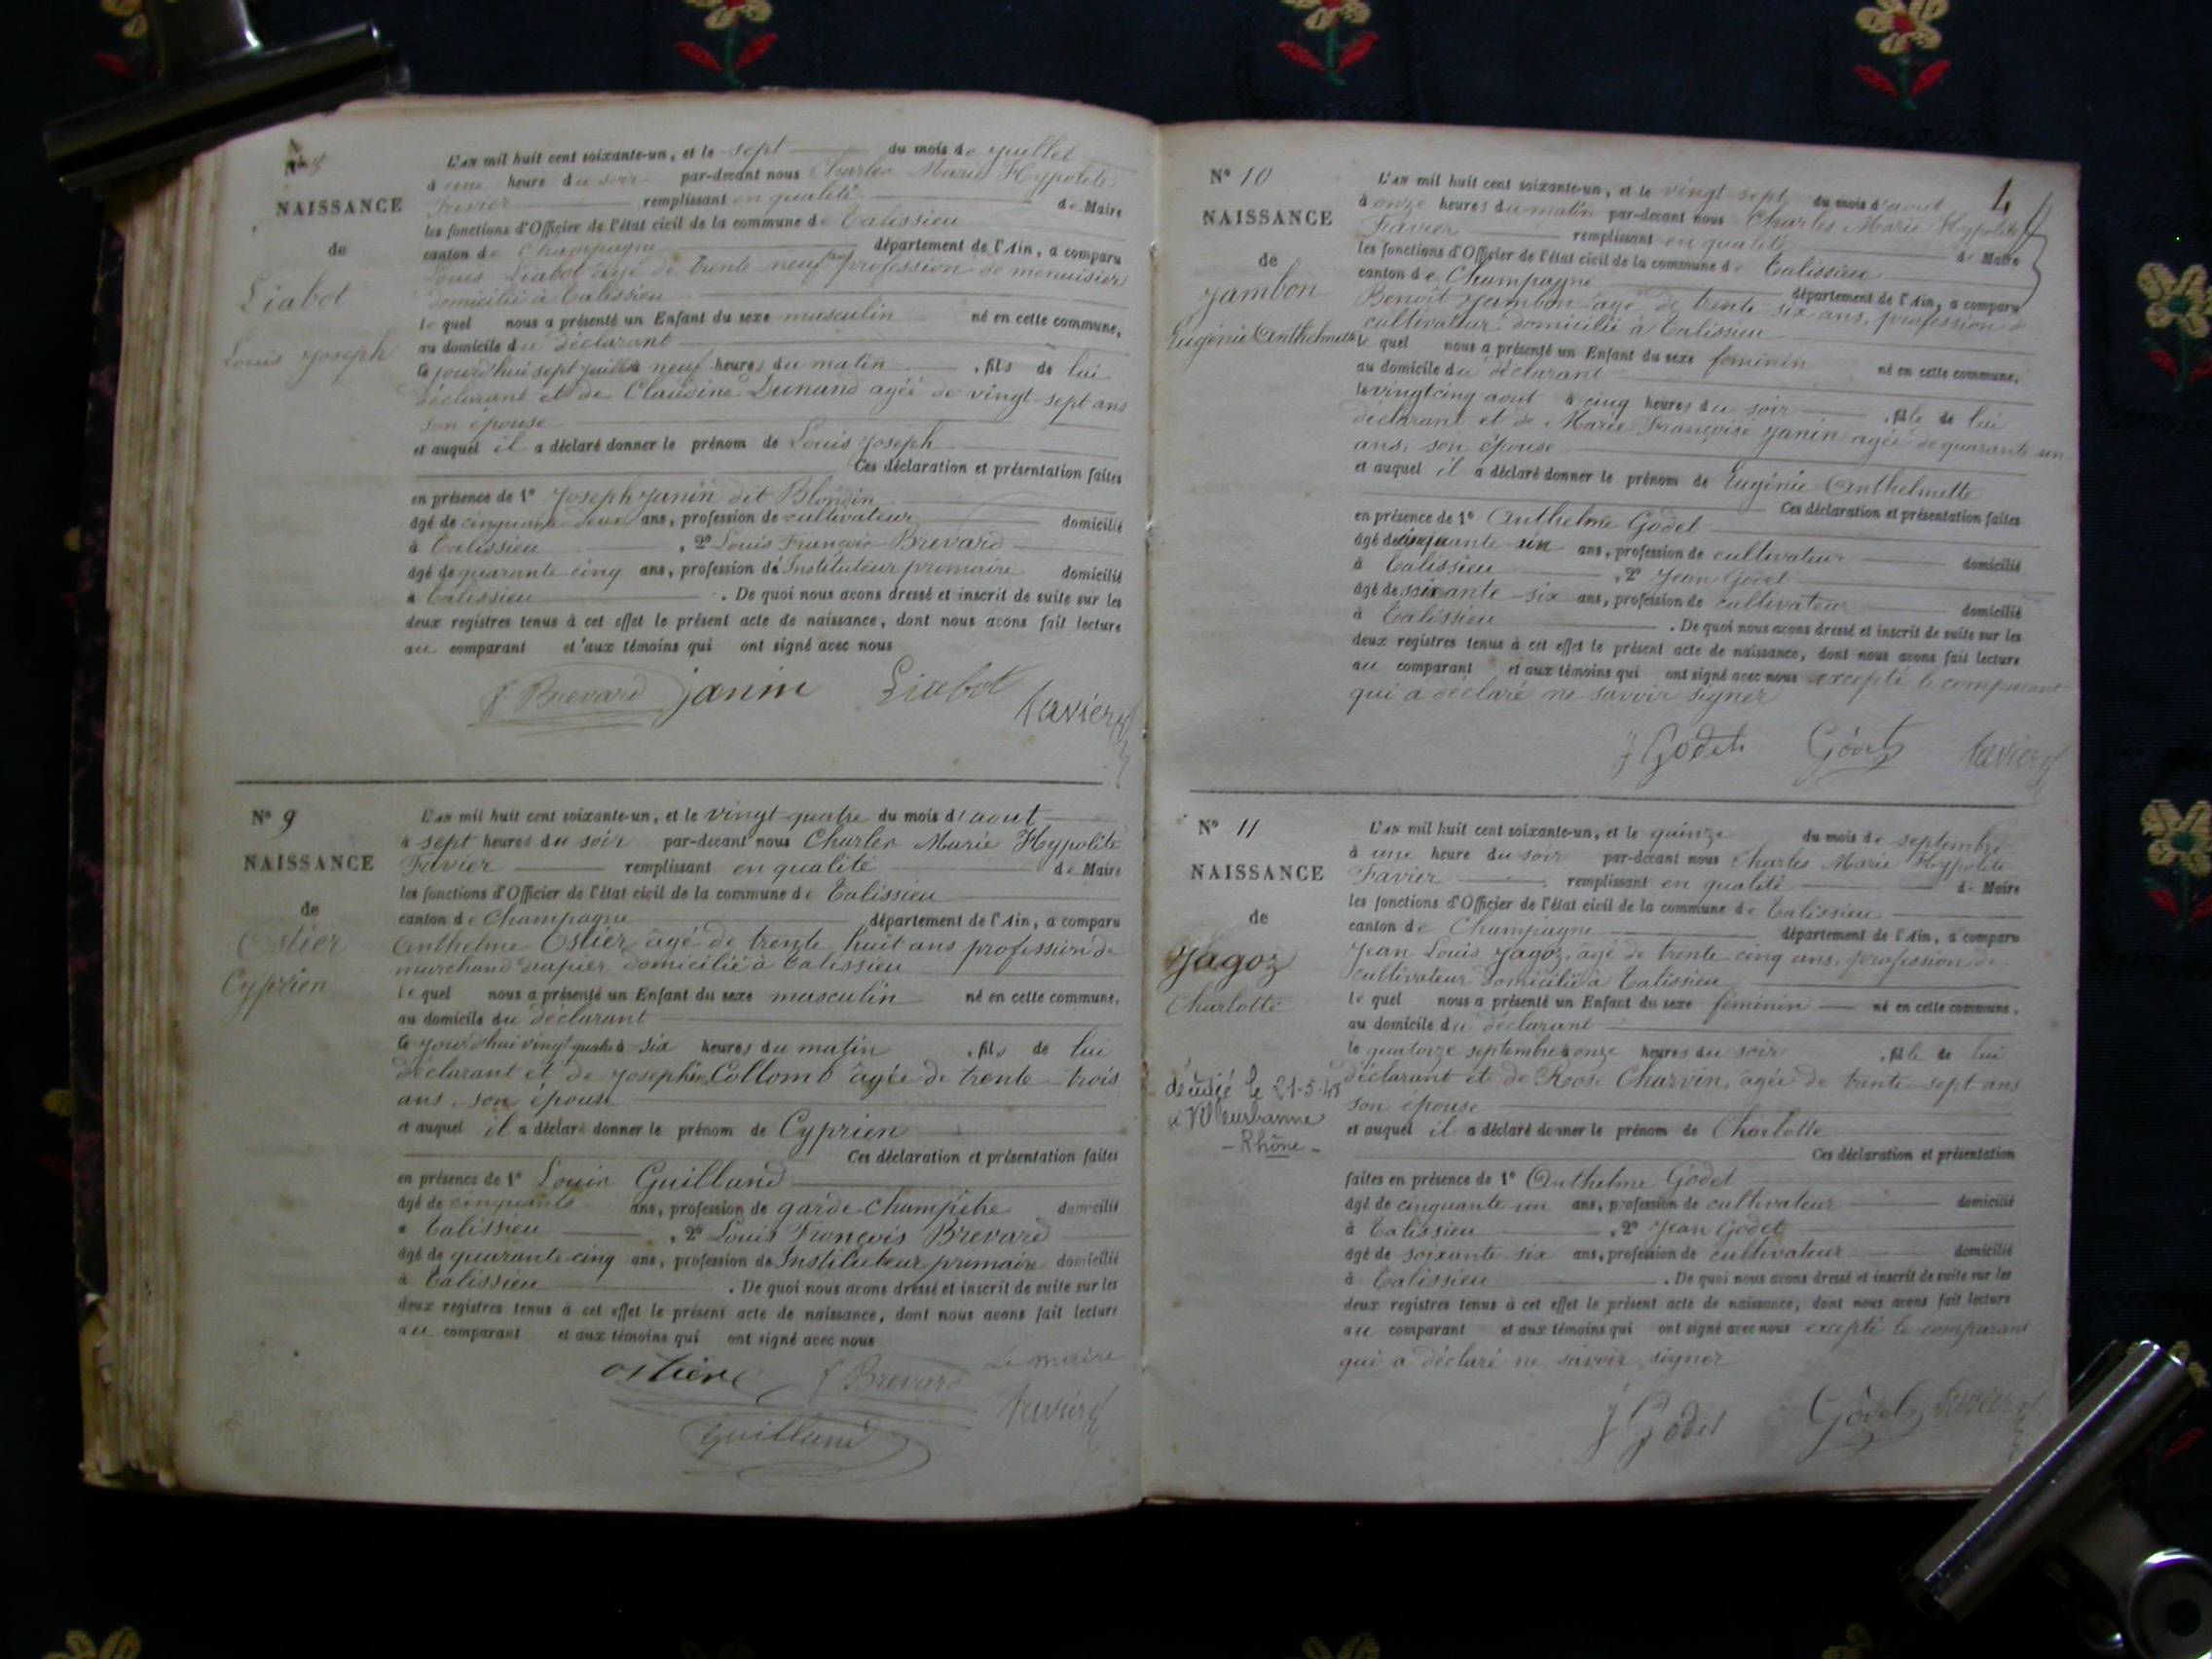 N° 8
NAISSANCE
de
Liabot
Louis Joseph
L'AN mil huit cent soixante-un, et le sept du mois de juillet
à une heure du soir par-devant nous Charles Marie Hypolite
Favier remplissant en qualité de Maire
les fonctions d'Officier de l'état civil de la commune de Talissieu
canton de Champagne département de l'Ain, a comparu
Louis Liabot âgé de trente neuf ans profession de menuisier
domicilié à Talissieu
lequel nous a présenté un Enfant du sexe masculin né en cette commune,
au domicile du déclarant
le jourd'hui sept juillet à neuf heures du matin , fils de lui
déclarant et de Claudine Dunand agée de vingt-sept ans
son épouse
et auquel il a déclaré donner le prénom de Louis Joseph
Ces déclaration et présentation faites
en présence de 1° Joseph Janin dit Blondin
âgé de cinquante deux ans, profession de cultivateur domicilié
à Talissieu , 2° Louis François Brevard
âgé de quarante cinq ans, profession de Instituteur primaire domicilié
à Talissieu . De quoi nous avons dressé et inscrit de suite sur les
deux registres tenus à cet effet le présent acte de naissance, dont nous avons fait lecture
au comparant et aux témoins qui ont signé avec nous
f Brevard janin Liabot favier
N° 9
NAISSANCE
de
Ostier
Cyprien
L'AN mil huit cent soixante-un, et le vingt-quatre du mois d'aout
à sept heures du soir par-devant nous Charles Marie Hypolite
Favier remplissant en qualité de Maire
les fonctions d'Officier de l'état civil de la commune de Talissieu
canton de Champagne département de l'Ain, a comparu
Anthelme Ostier âgé de trente huit ans profession de
marchand drapier domicilié à Talissieu
lequel nous a présenté un Enfant du sexe masculin né en cette commune,
au domicile du déclarant
le jourd'hui vingt quatre à six heures du matin , fils de lui
déclarant et de Josephe Collomb âgée de trente-trois
ans, son épouse
et auquel il a déclaré donner le prénom de Cyprien
Ces déclaration et présentation faites
en présence de 1° Louis Guilland
âgé de cinquante ans, profession de garde-champêtre domicilié
à Talissieu , 2° Louis François Brevard
âgé de quarante-cinq ans, profession de Instituteur primaire domicilié
à Talissieu . De quoi nous avons dressé et inscrit de suite sur les
deux registres tenus à cet effet le présent acte de naissance, dont nous avons fait lecture
au comparant et aux témoins qui ont signé avec nous
Le maire
ostier f Brevard favier
Guilland
4
N° 10
NAISSANCE
de
Jambon
Eugénie Anthelmette
L'AN mil huit cent soixante-un, et le vingt sept du mois d'aout
à onze heures du matin par-devant nous Charles Marie Hypolite
Favier remplissant en qualité de Maire
les fonctions d'Officier de l'état civil de la commune de Talissieu
canton de Champagne département de l'Ain, a comparu
Benoît Jambon âgé de trente-six ans, profession de
cultivateur domicilié à Talissieu
lequel nous a présenté un Enfant du sexe féminin né en cette commune,
au domicile du déclarant
le vingt cinq aout à cinq heures du soir , fille de lui
déclarant et de Marie Françoise Janin agée de quarante un
ans, son épouse
et auquel il a déclaré donner le prénom de Eugénie Anthelmette
Ces déclaration et présentation faites
en présence de 1° Anthelme Godet
âgé de cinquante un ans, profession de cultivateur domicilié
à Talissieu , 2° Jean Godet
âgé de soixante-six ans, profession de cultivateur domicilié
à Talissieu . De quoi nous avons dressé et inscrit de suite sur les
deux registres tenus à cet effet le présent acte de naissance, dont nous avons fait lecture
au comparant et aux témoins qui ont signé avec nous excepté le comparant
qui a déclaré ne savoir signer
J Godet Godet favier
N° 11
NAISSANCE
de
Jagoz
Charlotte
décédée le 21-5-45
à Villeurbanne
- Rhône -
L'AN mil huit cent soixante-un, et le quinze du mois de septembre
à une heure du soir par-devant nous Charles Marie Hypolite
Favier remplissant en qualité de Maire
les fonctions d'Officier de l'état civil de la commune de Talissieu
canton de Champagne département de l'Ain, a comparu
Jean Louis Jagoz, âgé de trente cinq ans, profession de
cultivateur domicilié à Talissieu
lequel nous a présenté un Enfant du sexe féminin né en cette commune,
au domicile du déclarant
le quatorze septembre à onze heures du soir , fille de lui
déclarant et de Rose Charvin, âgée de trente-sept ans
son épouse
et auquel il a déclaré donner le prénom de Charlotte
Ces déclaration et présentation
faites en présence de 1° Anthelme Godet
âgé de cinquante un ans, profession de cultivateur domicilié
à Talissieu , 2° Jean Godet
âgé de soixante six ans, profession de cultivateur domicilié
à Talissieu . De quoi nous avons dressé et inscrit de suite sur les
deux registres tenus à cet effet le présent acte de naissance, dont nous avons fait lecture
au comparant et aux témoins qui ont signé avec nous excepté le comparant
qui a déclaré ne savoir signer
J Godet Godet favier